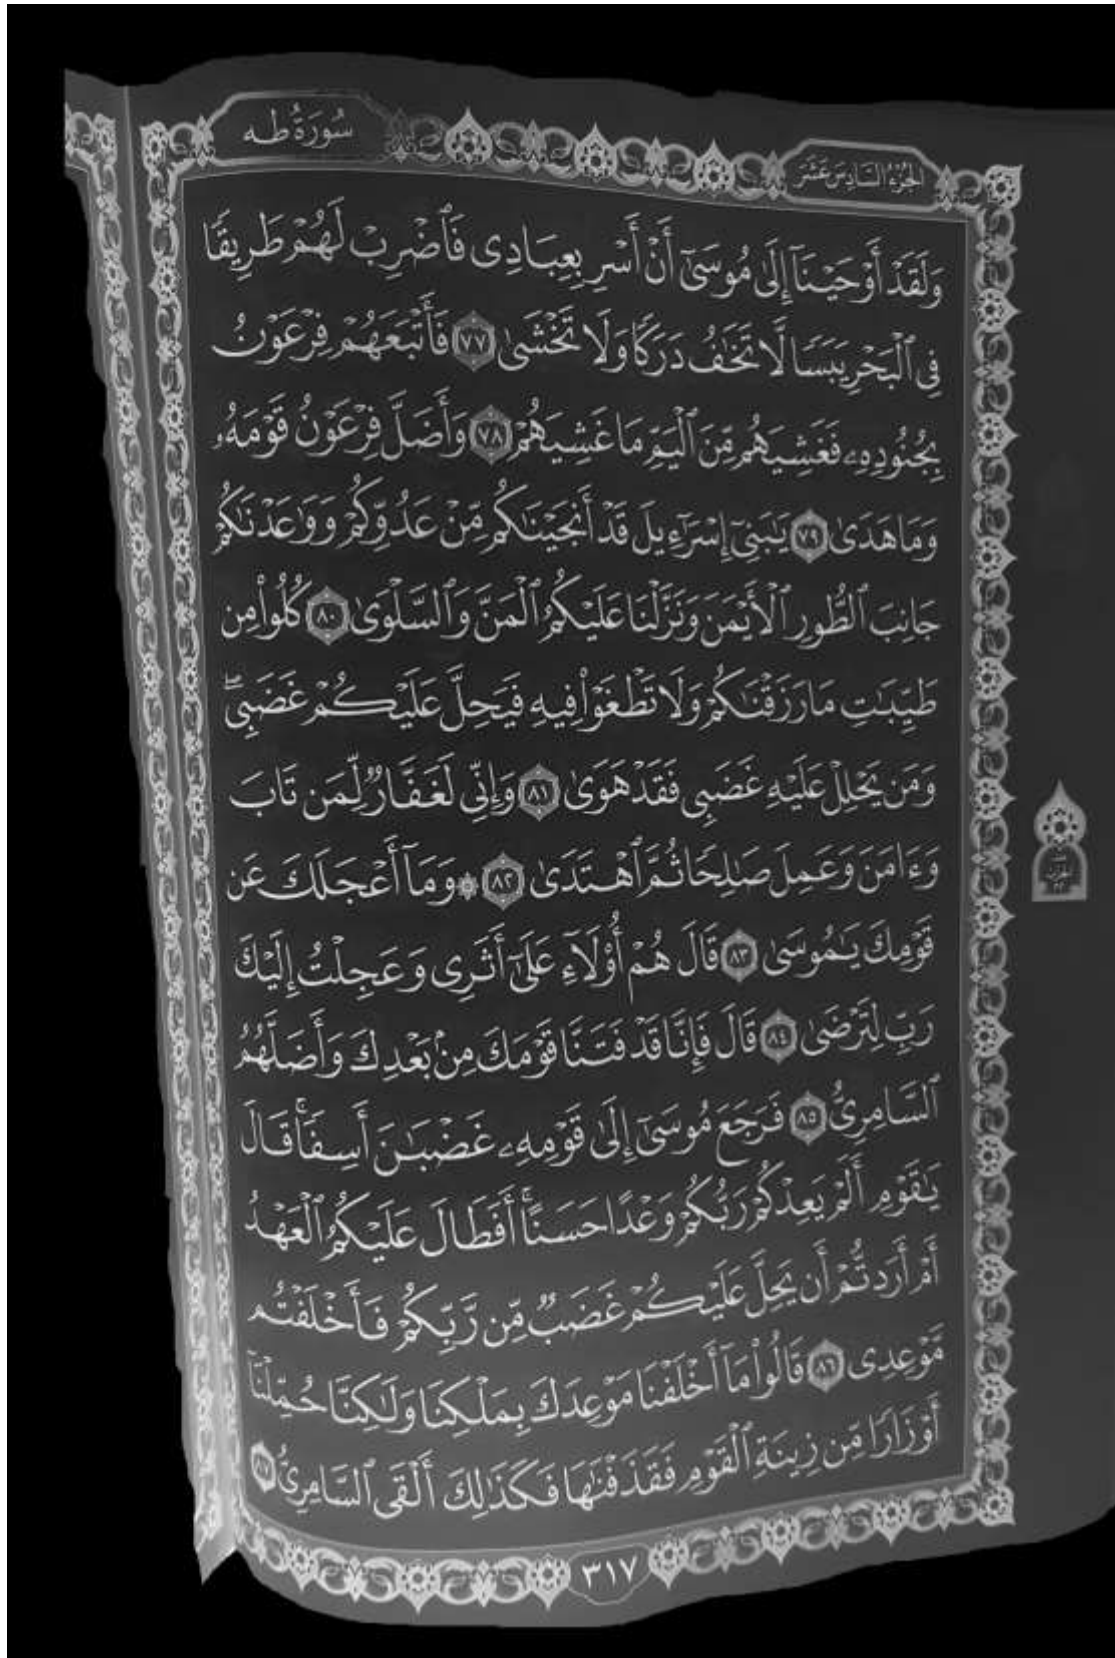 سُورَةُ طه
الجُزْءُ السَّادِسَ عَشَرَ
وَلَقَدْ أَوْحَيْنَآ إِلَىٰ مُوسَىٰٓ أَنْ أَسْرِ بِعِبَادِى فَٱضْرِبْ لَهُمْ طَرِيقًا
فِى ٱلْبَحْرِ يَبَسًا لَّا تَخَٰفُ دَرَكًا وَلَا تَخْشَىٰ ٧٧ فَأَتْبَعَهُمْ فِرْعَوْنُ
بِجُنُودِهِۦ فَغَشِيَهُم مِّنَ ٱلْيَمِّ مَا غَشِيَهُمْ ٧٨ وَأَضَلَّ فِرْعَوْنُ قَوْمَهُۥ
وَمَا هَدَىٰ ٧٩ يَٰبَنِىٓ إِسْرَٰٓءِيلَ قَدْ أَنجَيْنَٰكُم مِّنْ عَدُوِّكُمْ وَوَٰعَدْنَٰكُمْ
جَانِبَ ٱلطُّورِ ٱلْأَيْمَنَ وَنَزَّلْنَا عَلَيْكُمُ ٱلْمَنَّ وَٱلسَّلْوَىٰ ٨٠ كُلُوا۟ مِن
طَيِّبَٰتِ مَا رَزَقْنَٰكُمْ وَلَا تَطْغَوْا۟ فِيهِ فَيَحِلَّ عَلَيْكُمْ غَضَبِىۖ
وَمَن يَحْلِلْ عَلَيْهِ غَضَبِى فَقَدْ هَوَىٰ ٨١ وَإِنِّى لَغَفَّارٌ لِّمَن تَابَ
وَءَامَنَ وَعَمِلَ صَٰلِحًا ثُمَّ ٱهْتَدَىٰ ٨٢ ۞ وَمَآ أَعْجَلَكَ عَن
قَوْمِكَ يَٰمُوسَىٰ ٨٣ قَالَ هُمْ أُو۟لَآءِ عَلَىٰٓ أَثَرِى وَعَجِلْتُ إِلَيْكَ
رَبِّ لِتَرْضَىٰ ٨٤ قَالَ فَإِنَّا قَدْ فَتَنَّا قَوْمَكَ مِنۢ بَعْدِكَ وَأَضَلَّهُمُ
ٱلسَّامِرِىُّ ٨٥ فَرَجَعَ مُوسَىٰٓ إِلَىٰ قَوْمِهِۦ غَضْبَٰنَ أَسِفًاۚ قَالَ
يَٰقَوْمِ أَلَمْ يَعِدْكُمْ رَبُّكُمْ وَعْدًا حَسَنًاۚ أَفَطَالَ عَلَيْكُمُ ٱلْعَهْدُ
أَمْ أَرَدتُّمْ أَن يَحِلَّ عَلَيْكُمْ غَضَبٌ مِّن رَّبِّكُمْ فَأَخْلَفْتُم
مَّوْعِدِى ٨٦ قَالُوا۟ مَآ أَخْلَفْنَا مَوْعِدَكَ بِمَلْكِنَا وَلَٰكِنَّا حُمِّلْنَآ
أَوْزَارًا مِّن زِينَةِ ٱلْقَوْمِ فَقَذَفْنَٰهَا فَكَذَٰلِكَ أَلْقَى ٱلسَّامِرِىُّ ٨٧
٣١٧